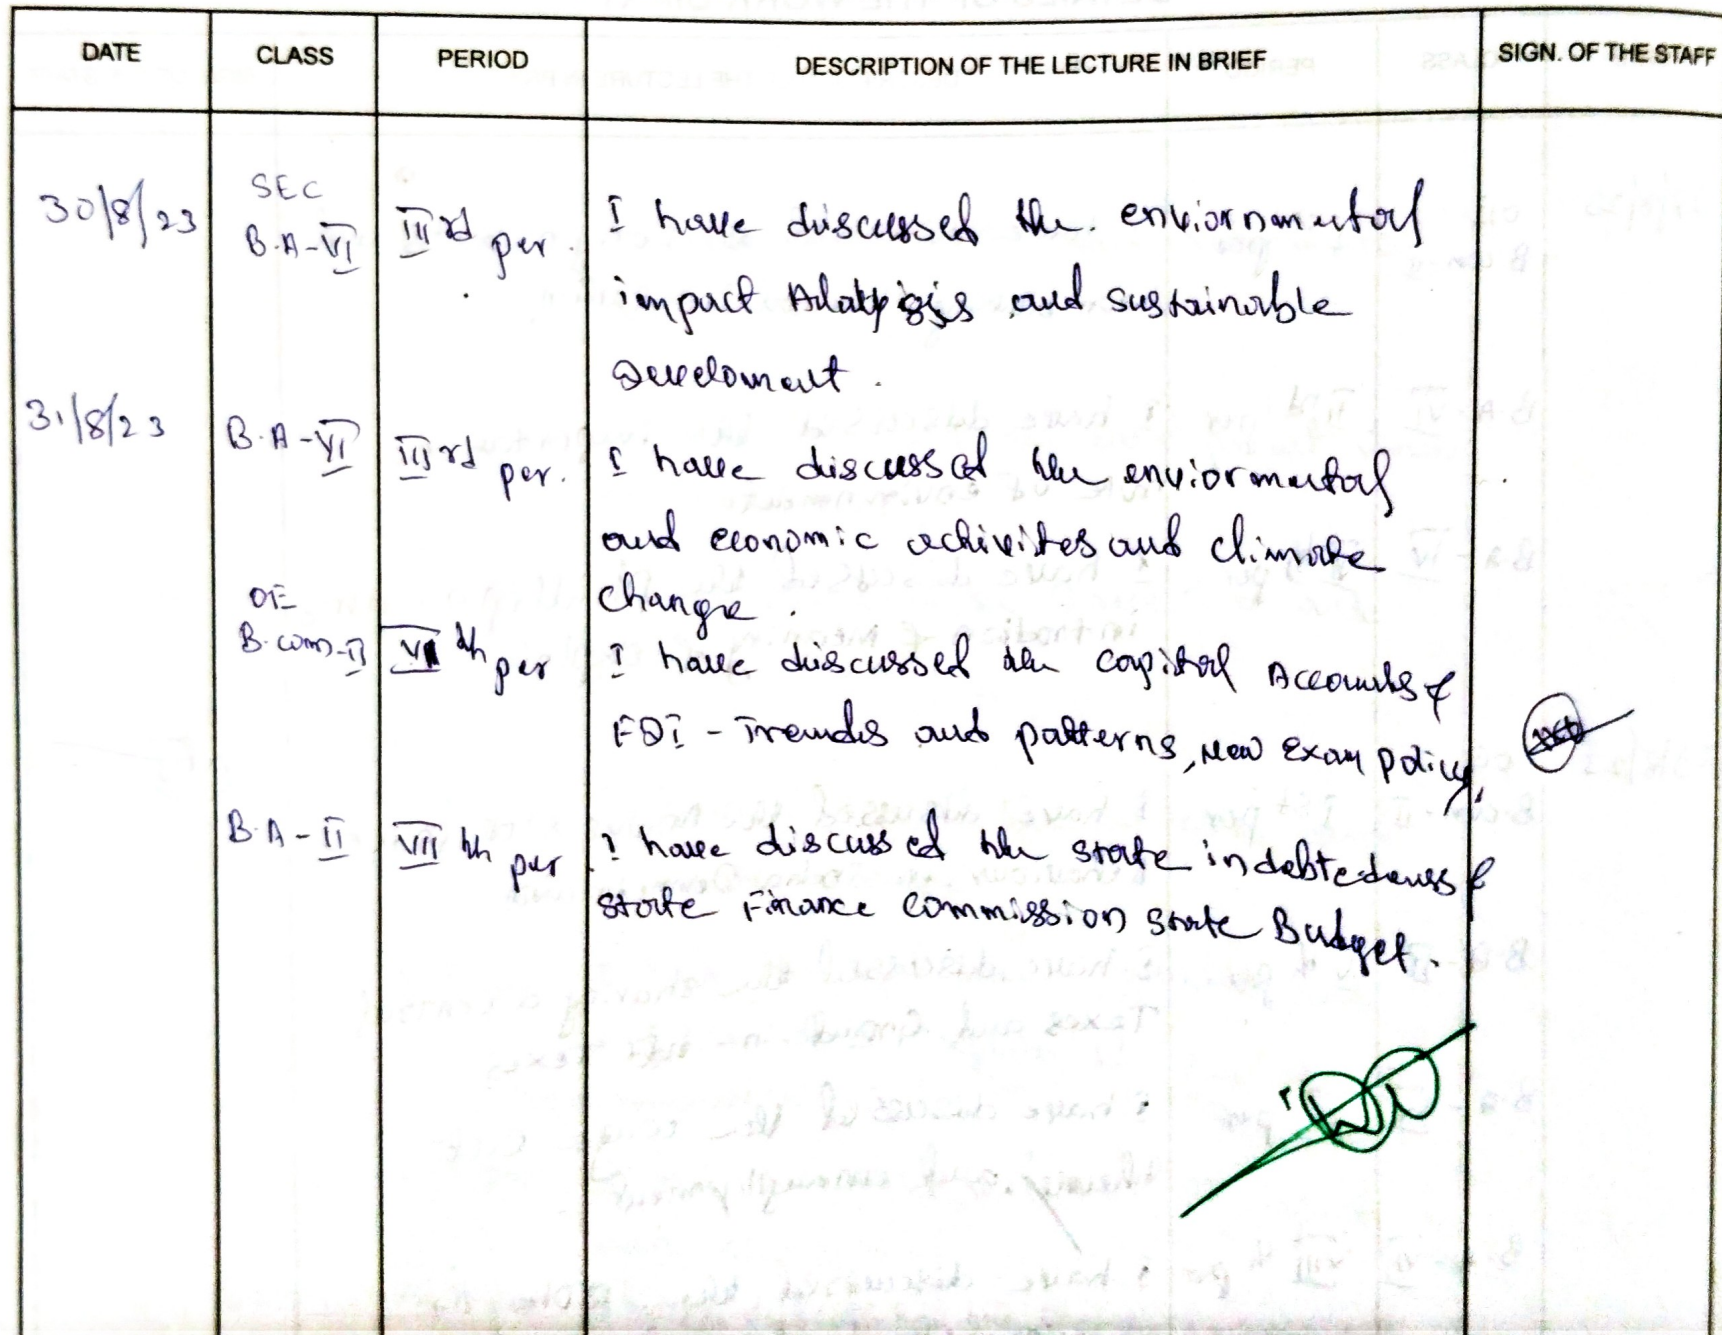 DATE CLASS PERIOD DESCRIPTION OF THE LECTURE IN BRIEF SIGN. OF THE STAFF
30/8/23 SEC B.A-VI III rd per. I have discussed the enviornmental
impact Analysis and sustainable
Develoment.
31/8/23 B.A-VI III rd per. I have discussed the enviormental
and economic activites and climate
change.
OE
B.com-II VI th per I have discussed the capital Accounts &
FDI - Trends and patterns, New Exam policy,
B.A-II VIII th per I have discussed the state indebtedness &
state Finance commission state Budget.